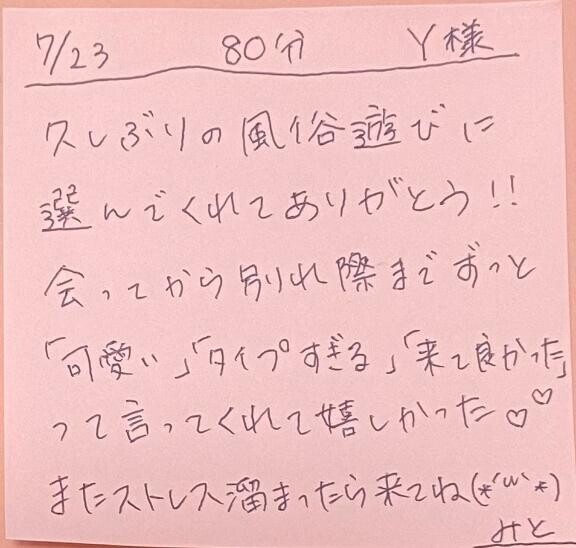 7/23 80分 Y様
久しぶりの風俗遊びに
選んでくれてありがとう!!
会ってから別れ際までずっと
「可愛い」「タイプすぎる」「来て良かった」
って言ってくれて嬉しかった♡♡
またストレス溜まったら来てね(*'ω'*)
みと